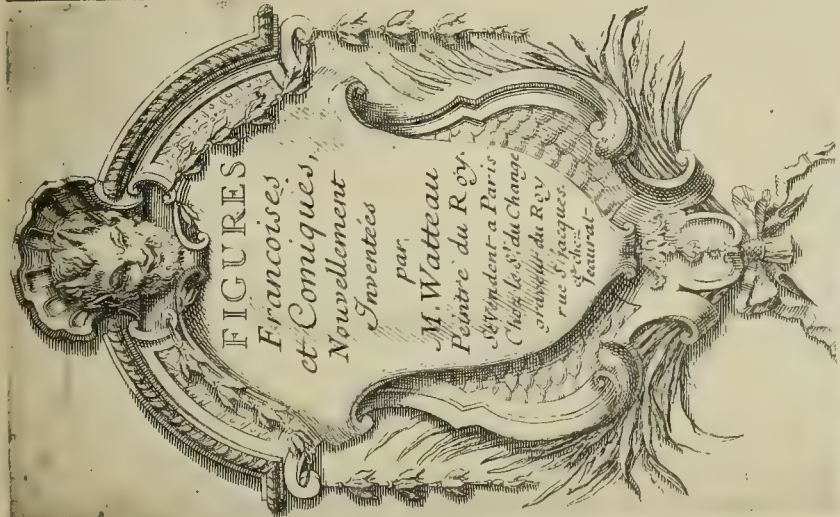 FIGURES
Francoises
et Comiques,
Nouvellement
Inventées
par
M. Watteau
Peintre du Roy.
Se Vendent a Paris
Chez le Sr. du Change
graveur du Roy
rue St. Jacques.
et chez
Jeaurat